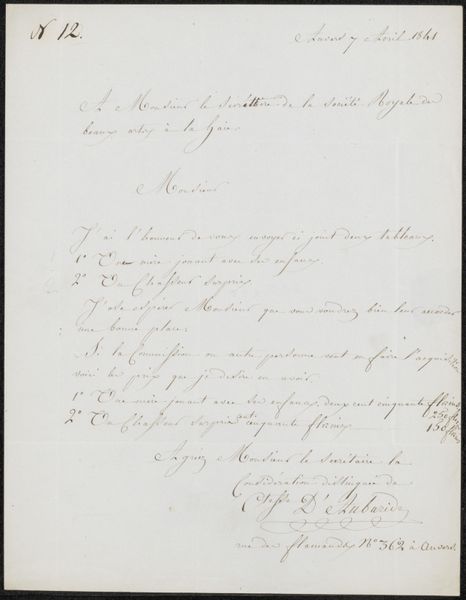 N 12.
Anvers 7 Avril 1841
A Monsieur le Secrétaire de la Société Royale de
beaux arts à la Haie.
Monsieur
J'ai l'honneur de vous envoyer ci joint deux tableaux.
1° Une mère jouant avec ses enfans.
2° Un Chasseur Surpris
J'ose espérer Monsieur que vous voudrez bien leur accorder
une bonne place.
Si la Commission ou autre personne veut en faire l'acquisition
voici les prix que je désire en avoir.
1° Une mère jouant avec ses enfans. deux cent cinquante florins
250
2° Un Chasseur Surpris cent cinquante florins
150
Agréez Monsieur le Secrétaire la
Considération distinguée de
D'Aubarède
rue des flamands N° 362 à Anvers.